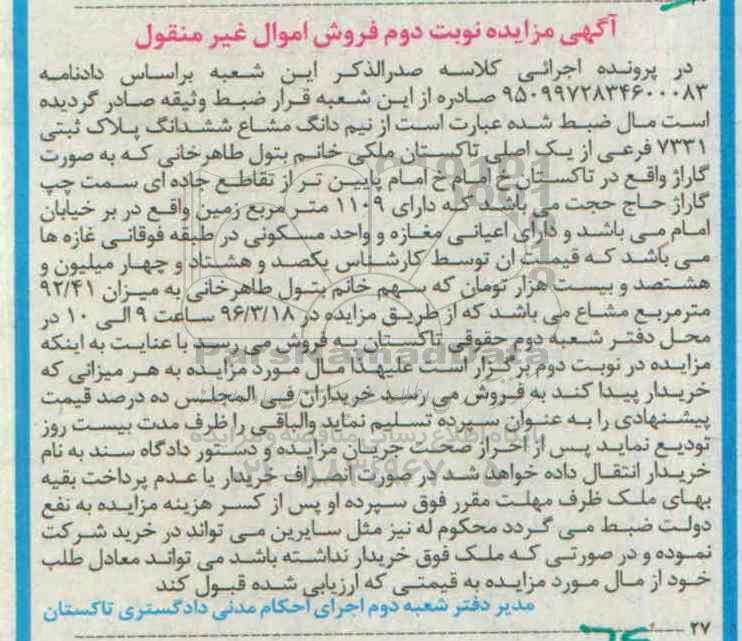 آگهی مزایده نوبت دوم فروش اموال غیر منقول
در پرونده اجرائی کلاسه صدرالذکر این شعبه براساس دادنامه
۹۵۰۹۹۷۲۸۳۴۶۰۰۰۸۳ صادره از این شعبه قرار ضبط وثیقه صادر گردیده
است مال ضبط شده عبارت است از نیم دانگ مشاع ششدانگ پلاک ثبتی
۷۳۳۱ فرعی از یک اصلی تاکستان ملکی خانم بتول طاهرخانی که به صورت
گاراژ واقع در تاکستان خ امام خ امام پایین تر از تقاطع جاده ای سمت چپ
گاراژ حاج حجت می باشد که دارای ۱۱۰۹ متر مربع زمین واقع در بر خیابان
امام می باشد و دارای اعیانی مغازه و واحد مسکونی در طبقه فوقانی غازه ها
می باشد که قیمت ان توسط کارشناس یکصد و هشتاد و چهار میلیون و
هشتصد و بیست هزار تومان که سهم خانم بتول طاهرخانی به میزان ۹۲/۴۱
مترمربع مشاع می باشد که از طریق مزایده در ۹۶/۳/۱۸ ساعت ۹ الی ۱۰ در
محل دفتر شعبه دوم حقوقی تاکستان به فروش می رسد با عنایت به اینکه
مزایده در نوبت دوم برگزار است علیهذا مال مورد مزایده به هر میزانی که
خریدار پیدا کند به فروش می رسد خریداران فی المجلس ده درصد قیمت
پیشنهادی را به عنوان سپرده تسلیم نماید والباقی را ظرف مدت بیست روز
تودیع نماید پس از احراز صحت جریان مزایده و دستور دادگاه سند به نام
خریدار انتقال داده خواهد شد در صورت انصراف خریدار یا عدم پرداخت بقیه
بهای ملک ظرف مهلت مقرر فوق سپرده او پس از کسر هزینه مزایده به نفع
دولت ضبط می گردد محکوم له نیز مثل سایرین می تواند در خرید شرکت
نموده و در صورتی که ملک فوق خریدار نداشته باشد می تواند معادل طلب
خود از مال مورد مزایده به قیمتی که ارزیابی شده قبول کند
مدیر دفتر شعبه دوم اجرای احکام مدنی دادگستری تاکستان
۲۷
ParsNamadData